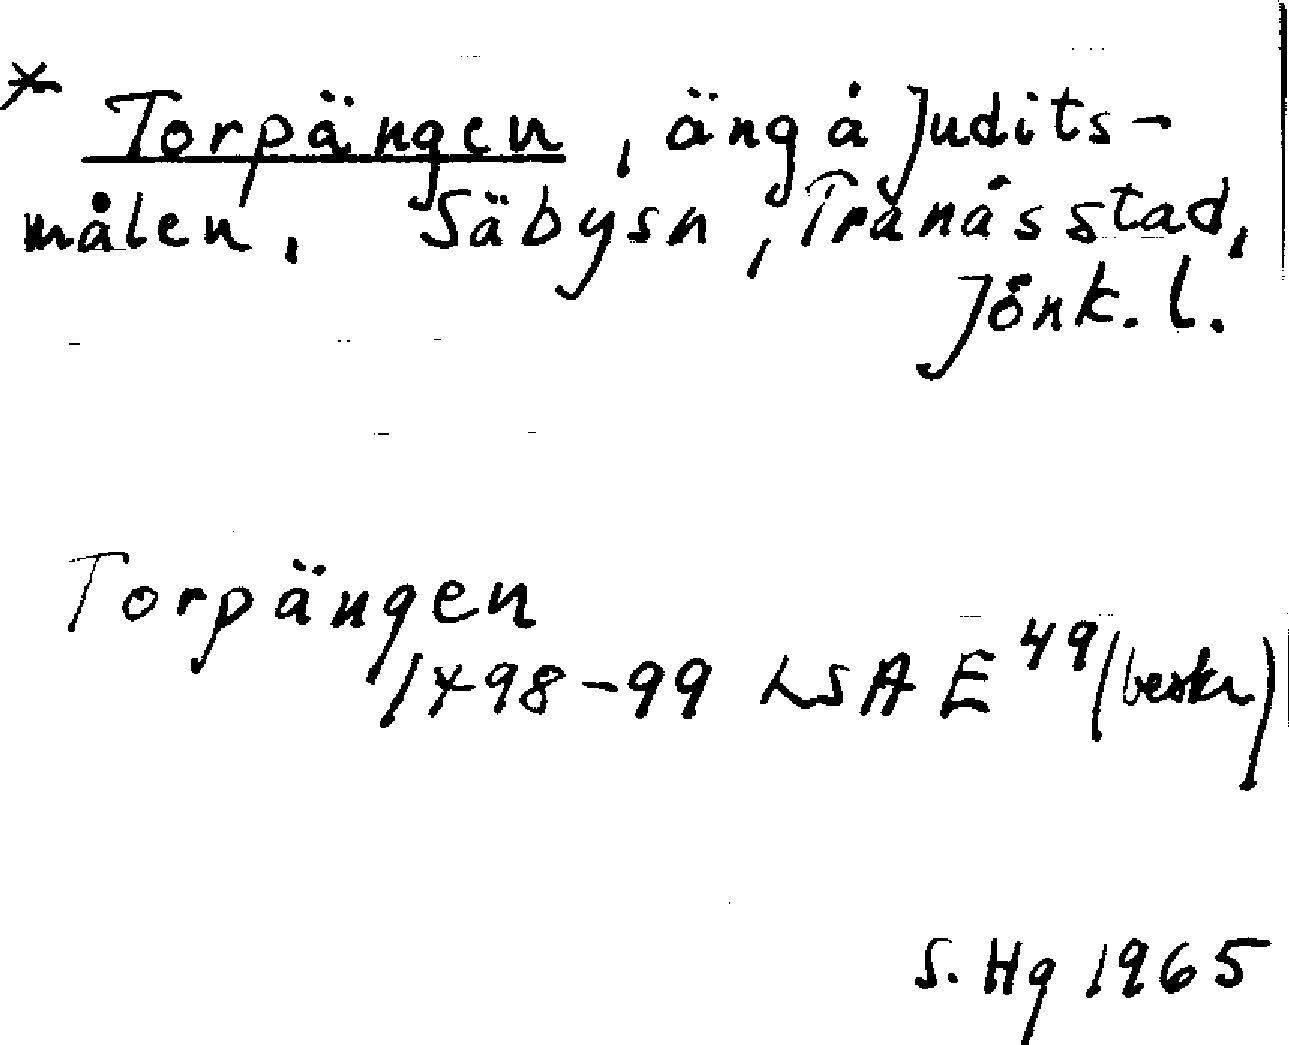 * Torpängen, äng å Judits-
målen. Säby sn, Tranås stad,
Jönk. l.
Torpängen
1798-99 LSA E 49 (beskr)
S. Hg 1965